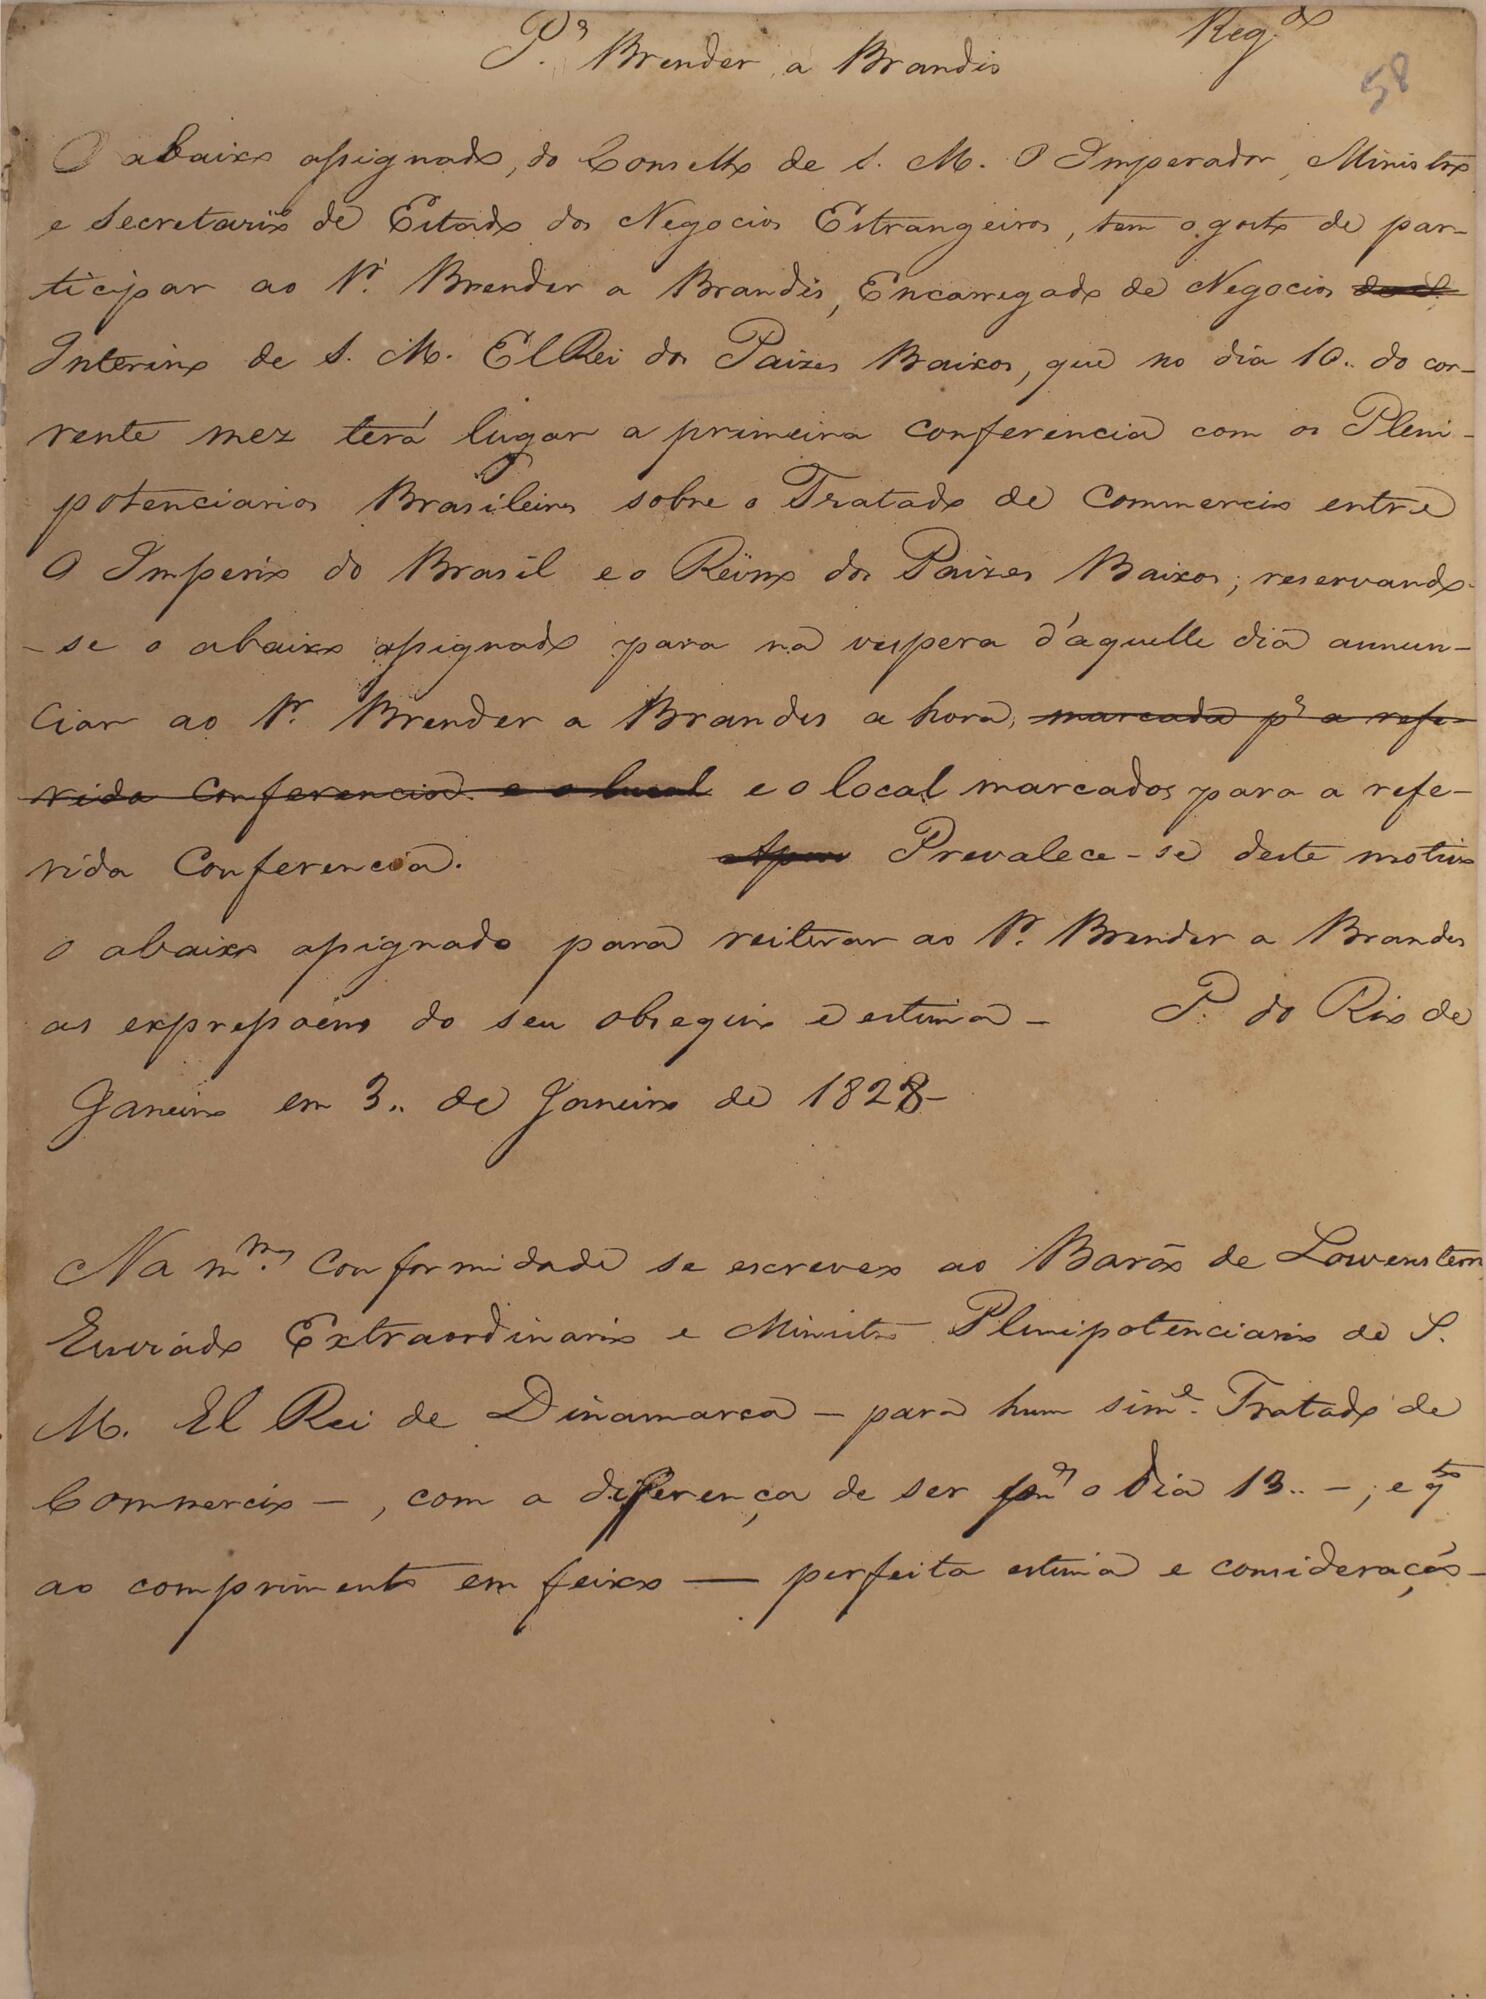 Pª Brender a Brandis
Regdo
58
O abaixo assignado, do Conselho de S. M. O Imperador, Ministro
e Secretario de Estado dos Negocios Estrangeiros, tem o gosto de par-
ticipar ao Sr. Brender a Brandis, Encarregado de Negocios
Interino de S. M. ElRei dos Paizes Baixos, que no dia 10.. do cor-
rente mez terá lugar a primeira conferencia com os Pleni-
potenciarios Brasileiros sobre o Tratado de Commercio entre
O Imperio do Brasil e o Reino dos Paizes Baixos; reservando-
-se o abaixo assignado para na vespera d'aquelle dia annun-
ciar ao Sr. Brender a Brandis a hora, marcada pª a refe-
rida conferencia e o local e o local marcados para a refe-
rida Conferencia. Prevalece-se deste motivo
o abaixo assignado para reiterar ao Sr. Brender a Brandis
as expressoens do seu obsequio e estima - P. do Rio de
Janeiro em 3.. de Janeiro de 1828-
Na mma. Conformidade se escreveo ao Barão de Lowenstern
Enviado Extraordinario e Ministro Plenipotenciario de S.
M. El Rei de Dinamarca - para hum sime. Tratado de
Commercio -, com a diferença de ser o dia 13.. -; e qto
ao comprimento em feixo — perfeita estima e consideração-